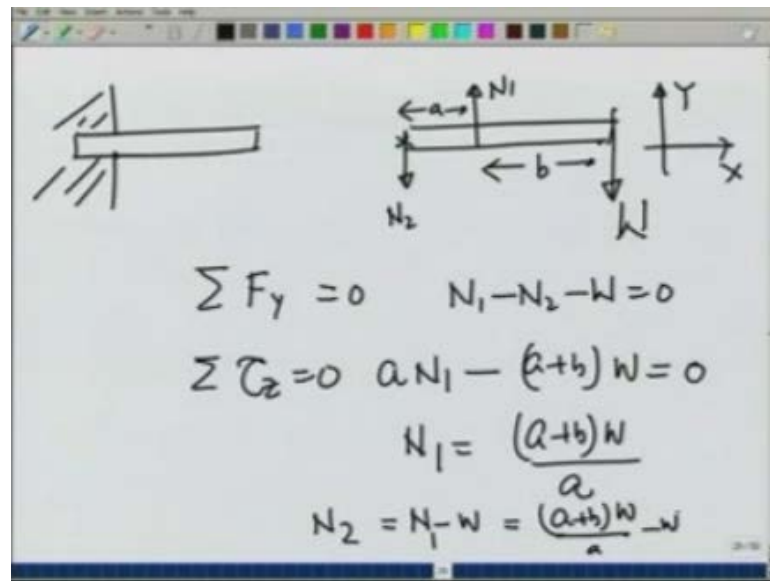 N1
a
Y
b
X
N2
W
Σ Fy = 0 N1 - N2 - W = 0
Σ τz = 0 a N1 - (a+b) W = 0
N1 = (a+b)W / a
N2 = N1 - W = (a+b)W / a - W